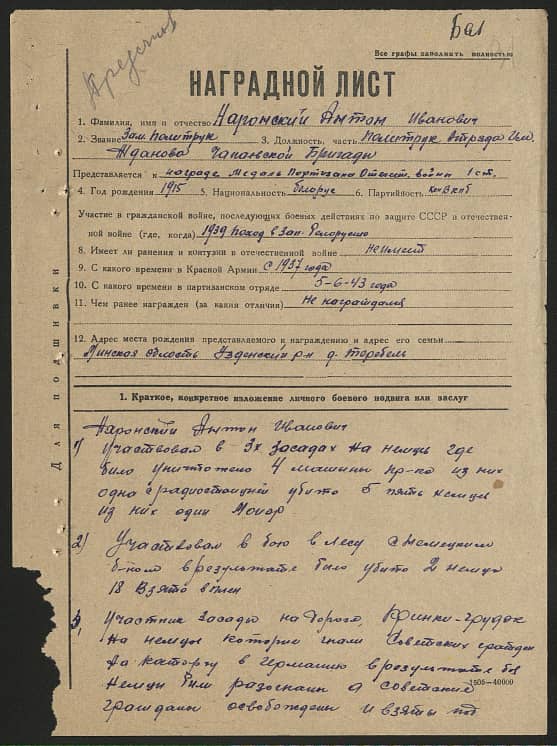 Бал
Все графы заполнить полностью
НАГРАДНОЙ ЛИСТ
1. Фамилия, имя и отчество Наронский Антон Иванович
2. Звание Зам. политрук 3. Должность, часть Политрук отряда Им.
Жданова Чапаевской Бригады
Представляется к награде Медаль Партизана Отечест. войны 1 ст.
4. Год рождения 1915 5. Национальность белорус 6. Партийность
Участие в гражданской войне, последующих боевых действиях по защите СССР и отечествен-
ной войне (где, когда) 1939 поход в Зап. Белоруссию
8. Имеет ли ранения и контузии в отечественной войне не имеет
9. С какого времени в Красной Армии с 1937 года
10. С какого времени в партизанском отряде 5-6-43 года
11. Чем ранее награжден (за какия отличия) Не награждался
12. Адрес места рождения представляемого к награждению и адрес его семьи
Минская область Узденский р-н д. Теребель
Для подшивки
1. Краткое, конкретное изложение личного боевого подвига или заслуг
Наронский Антон Иванович
1) Участвовал в 3х засадах на немцев где
было уничтожено 4 машины пр-ка из них
одна с радиостанцией убито 5 пять немцев
из них один Маиор
2) Участвовал в бою в лесу с немецким
б-ном в результате было убито 2 немца
18 взято в плен
3) Участник засады на дороге Кринки-грудок
на немцев которые гнали Советских граждан
на каторгу в германию в результате боя
немцы были разогнаны а советские
1506-40000
граждане освобождены и взяты под